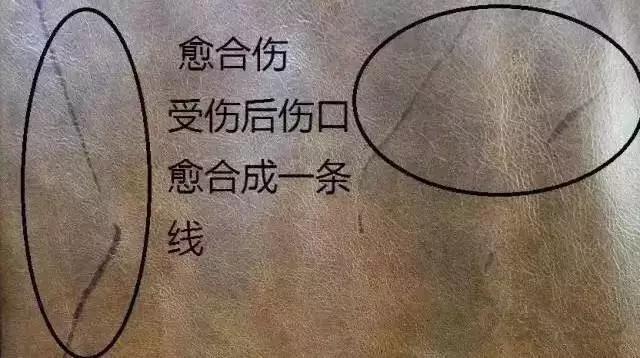 愈合伤
受伤后伤口
愈合成一条
线